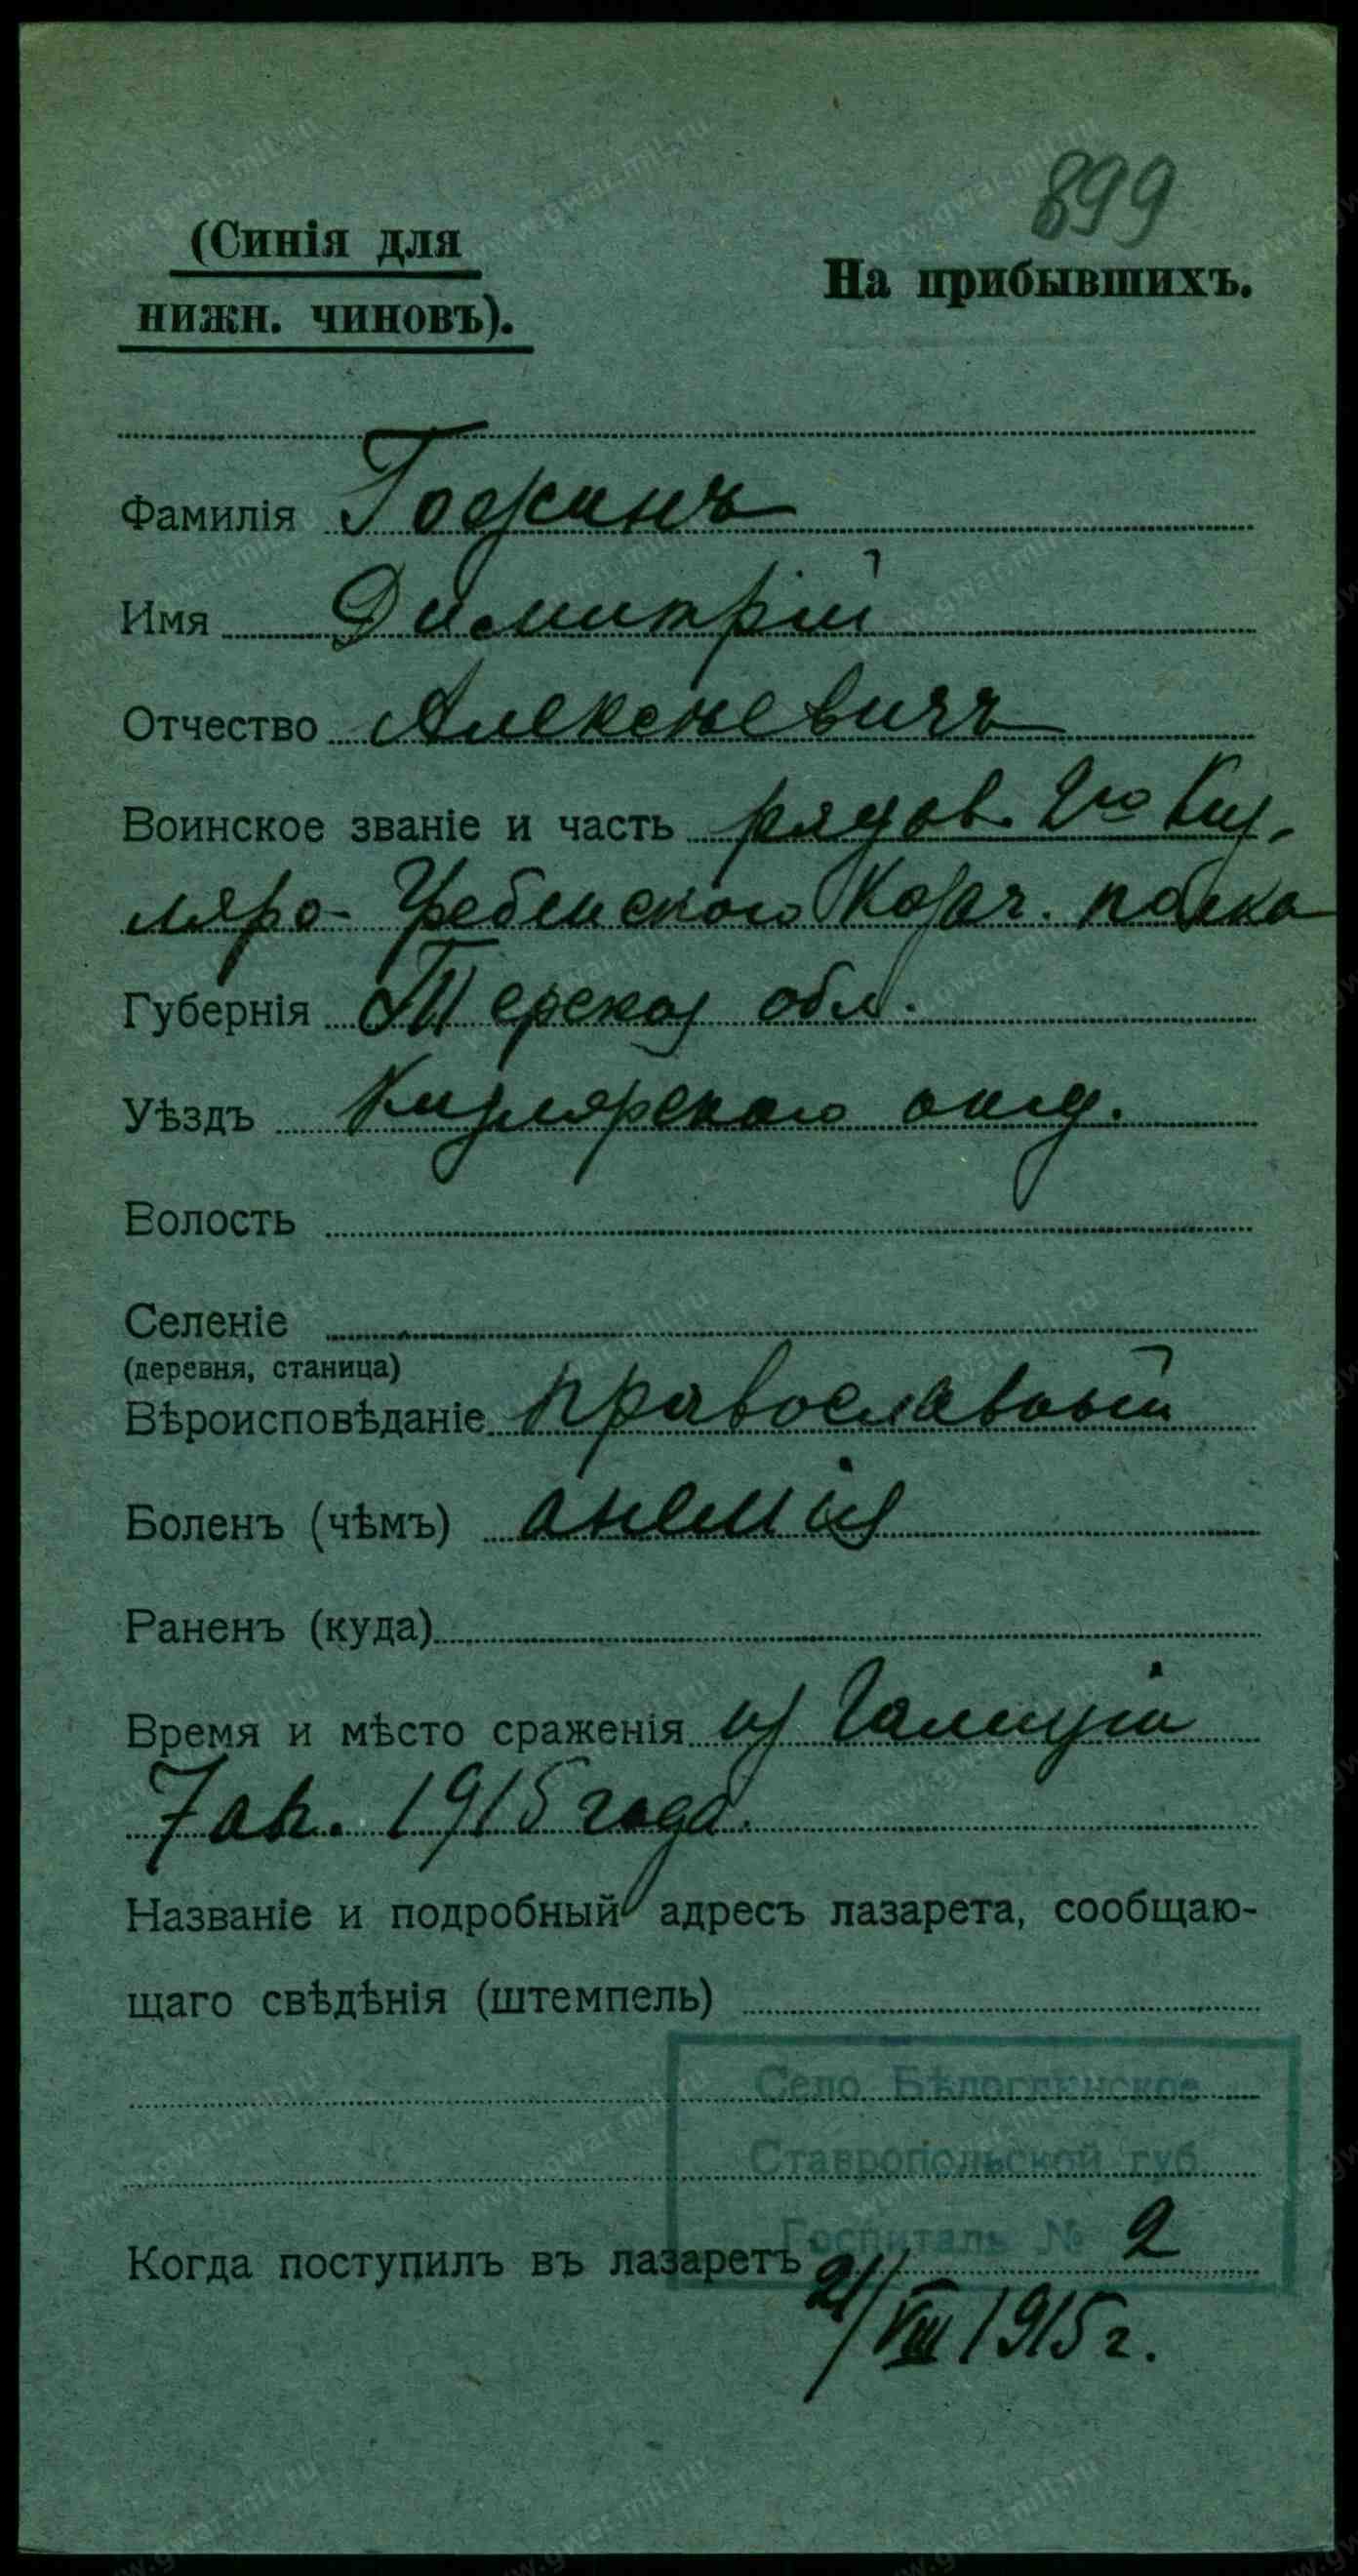 899
(Синія для
нижн. чиновъ).
На прибывшихъ.
Фамилія Гожинъ
Имя Димитрій
Отчество Алексѣевичъ
Воинское званіе и часть рядов. 2го Киз-
ляро-Гребенского Казач. полка
Губернія Терской обл.
Уѣздъ Кизлярскаго окр.
Волость
Селеніе
(деревня, станица)
Вѣроисповѣданіе православный
Боленъ (чѣмъ) анемія
Раненъ (куда)
Время и мѣсто сраженія из Галиціи
7 ап. 1915 года.
Названіе и подробный адресъ лазарета, сообщаю-
щаго свѣдѣнія (штемпель)
Село Бѣлоглинское
Ставропольской губ.
Госпиталь № 2
Когда поступилъ въ лазаретъ 21/VIII 1915 г.